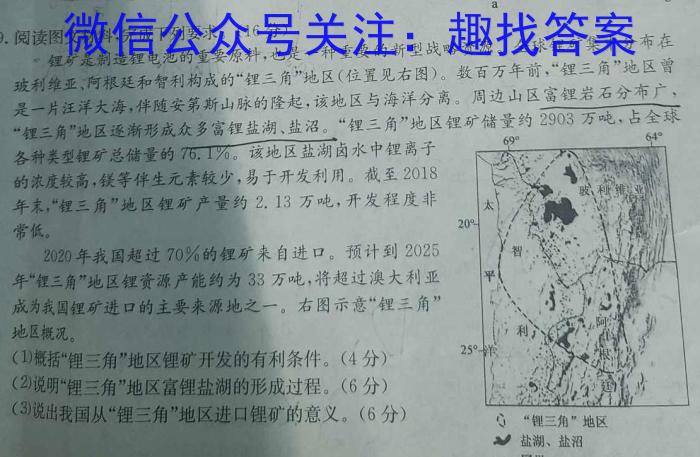 微信公众号关注：趣找答案
9. 阅读图
锂矿是制造锂电池的重要原料,也是一种重要的新型战略 分布在
玻利维亚、阿根廷和智利构成的“锂三角”地区(位置见右图)。数百万年前,“锂三角”地区曾
是一片汪洋大海,伴随安第斯山脉的隆起,该地区与海洋分离。周边山区富锂岩石分布广,
“锂三角”地区逐渐形成众多富锂盐湖、盐沼。“锂三角”地区锂矿储量约2903万吨,占全球
各种类型锂矿总储量的76.1%。该地区盐湖卤水中锂离子
的浓度较高,镁等伴生元素较少,易于开发利用。截至2018
年末,“锂三角”地区锂矿产量约2.13万吨,开发程度非
常低。
2020年我国超过70%的锂矿来自进口。预计到2025
年“锂三角”地区锂资源产能约为33万吨,将超过澳大利亚
成为我国锂矿进口的主要来源地之一。右图示意“锂三角”
地区概况。
(1)概括“锂三角”地区锂矿开发的有利条件。(4分)
(2)说明“锂三角”地区富锂盐湖的形成过程。(6分)
(3)说出我国从“锂三角”地区进口锂矿的意义。(6分)
a
69°
64°
玻利维亚
太平洋
智利
阿根廷
20°
25°
“锂三角”地区
盐湖、盐沼